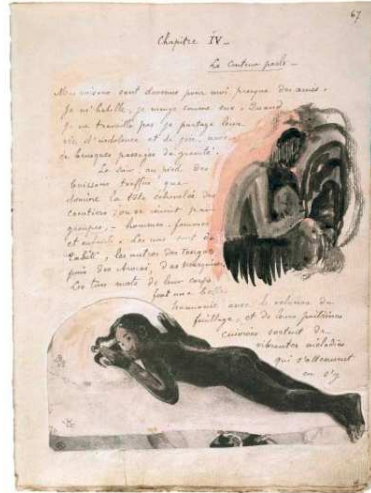 67
Chapitre IV_
Le Conteur parle_
Mes voisins sont devenus pour moi presque des amis.
Je m'habille, je mange comme eux. Quand
je ne travaille pas je partage leur
vie d'indolence et de joie, avec
de brusques passages de gravité.
Le soir, au pied des
buissons touffus que
domine la tête échevelée des
cocotiers on se réunit par
groupes, - hommes, femmes
et enfants. Les uns sont de
Tahiti, les autres des Tongas
puis des Arorai, des Marquises.
Les tons mats de leur corps
font une belle
harmonie avec le velours du
feuillage, et de leurs poitrines
cuivrées sortent de
vibrantes mélodies
qui s'atténuent
en s'y